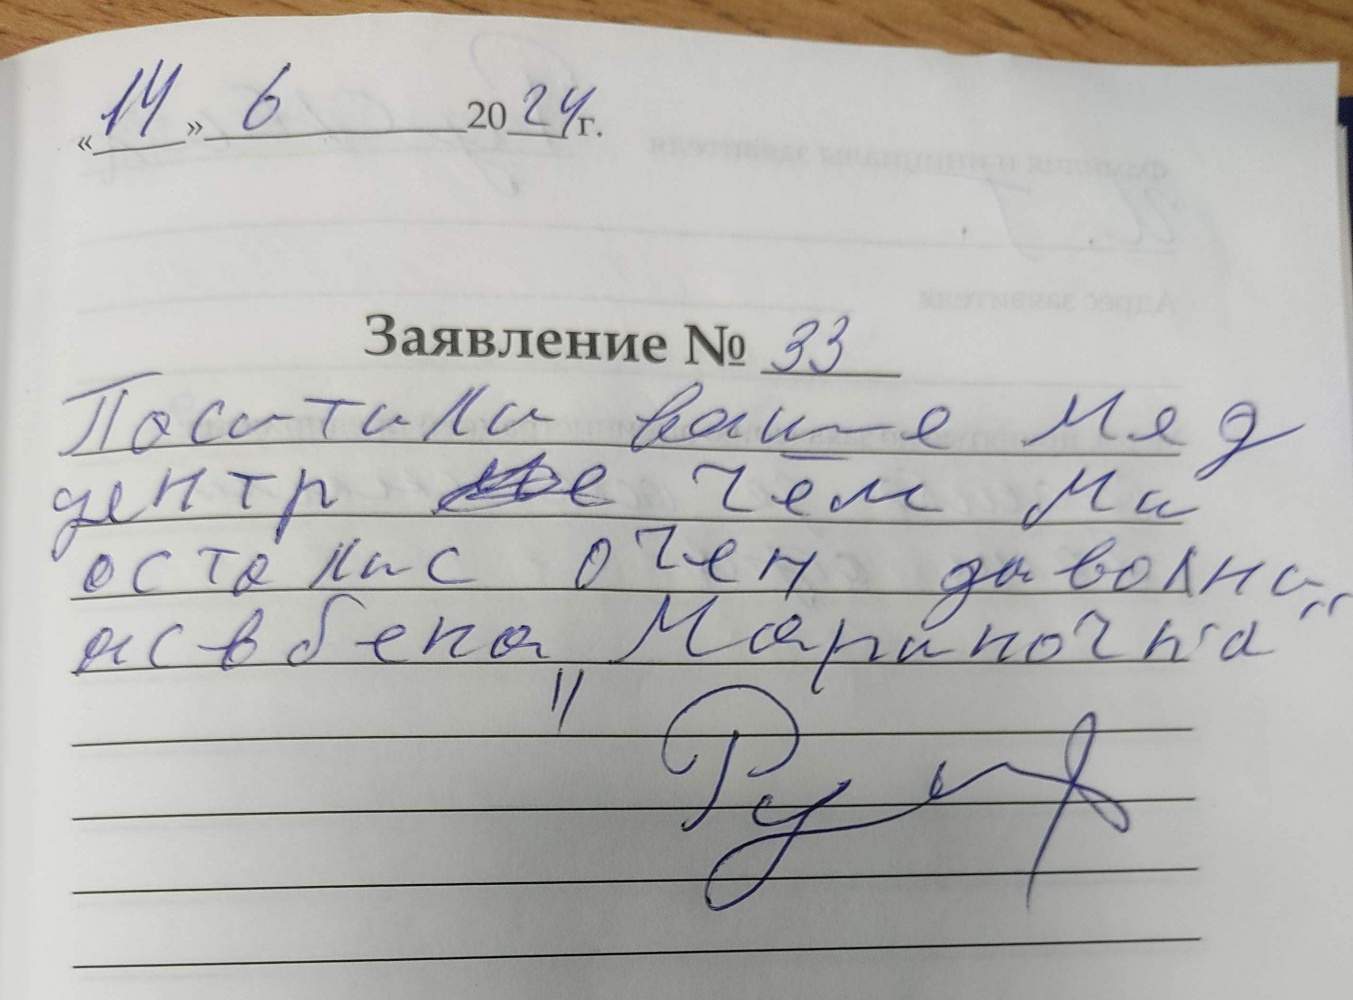 «14» 6 2024 г.
Заявление № 33
Поситили ваше мед
центр чем ми
осталис очен даволни
асвбена Мариночка"
"